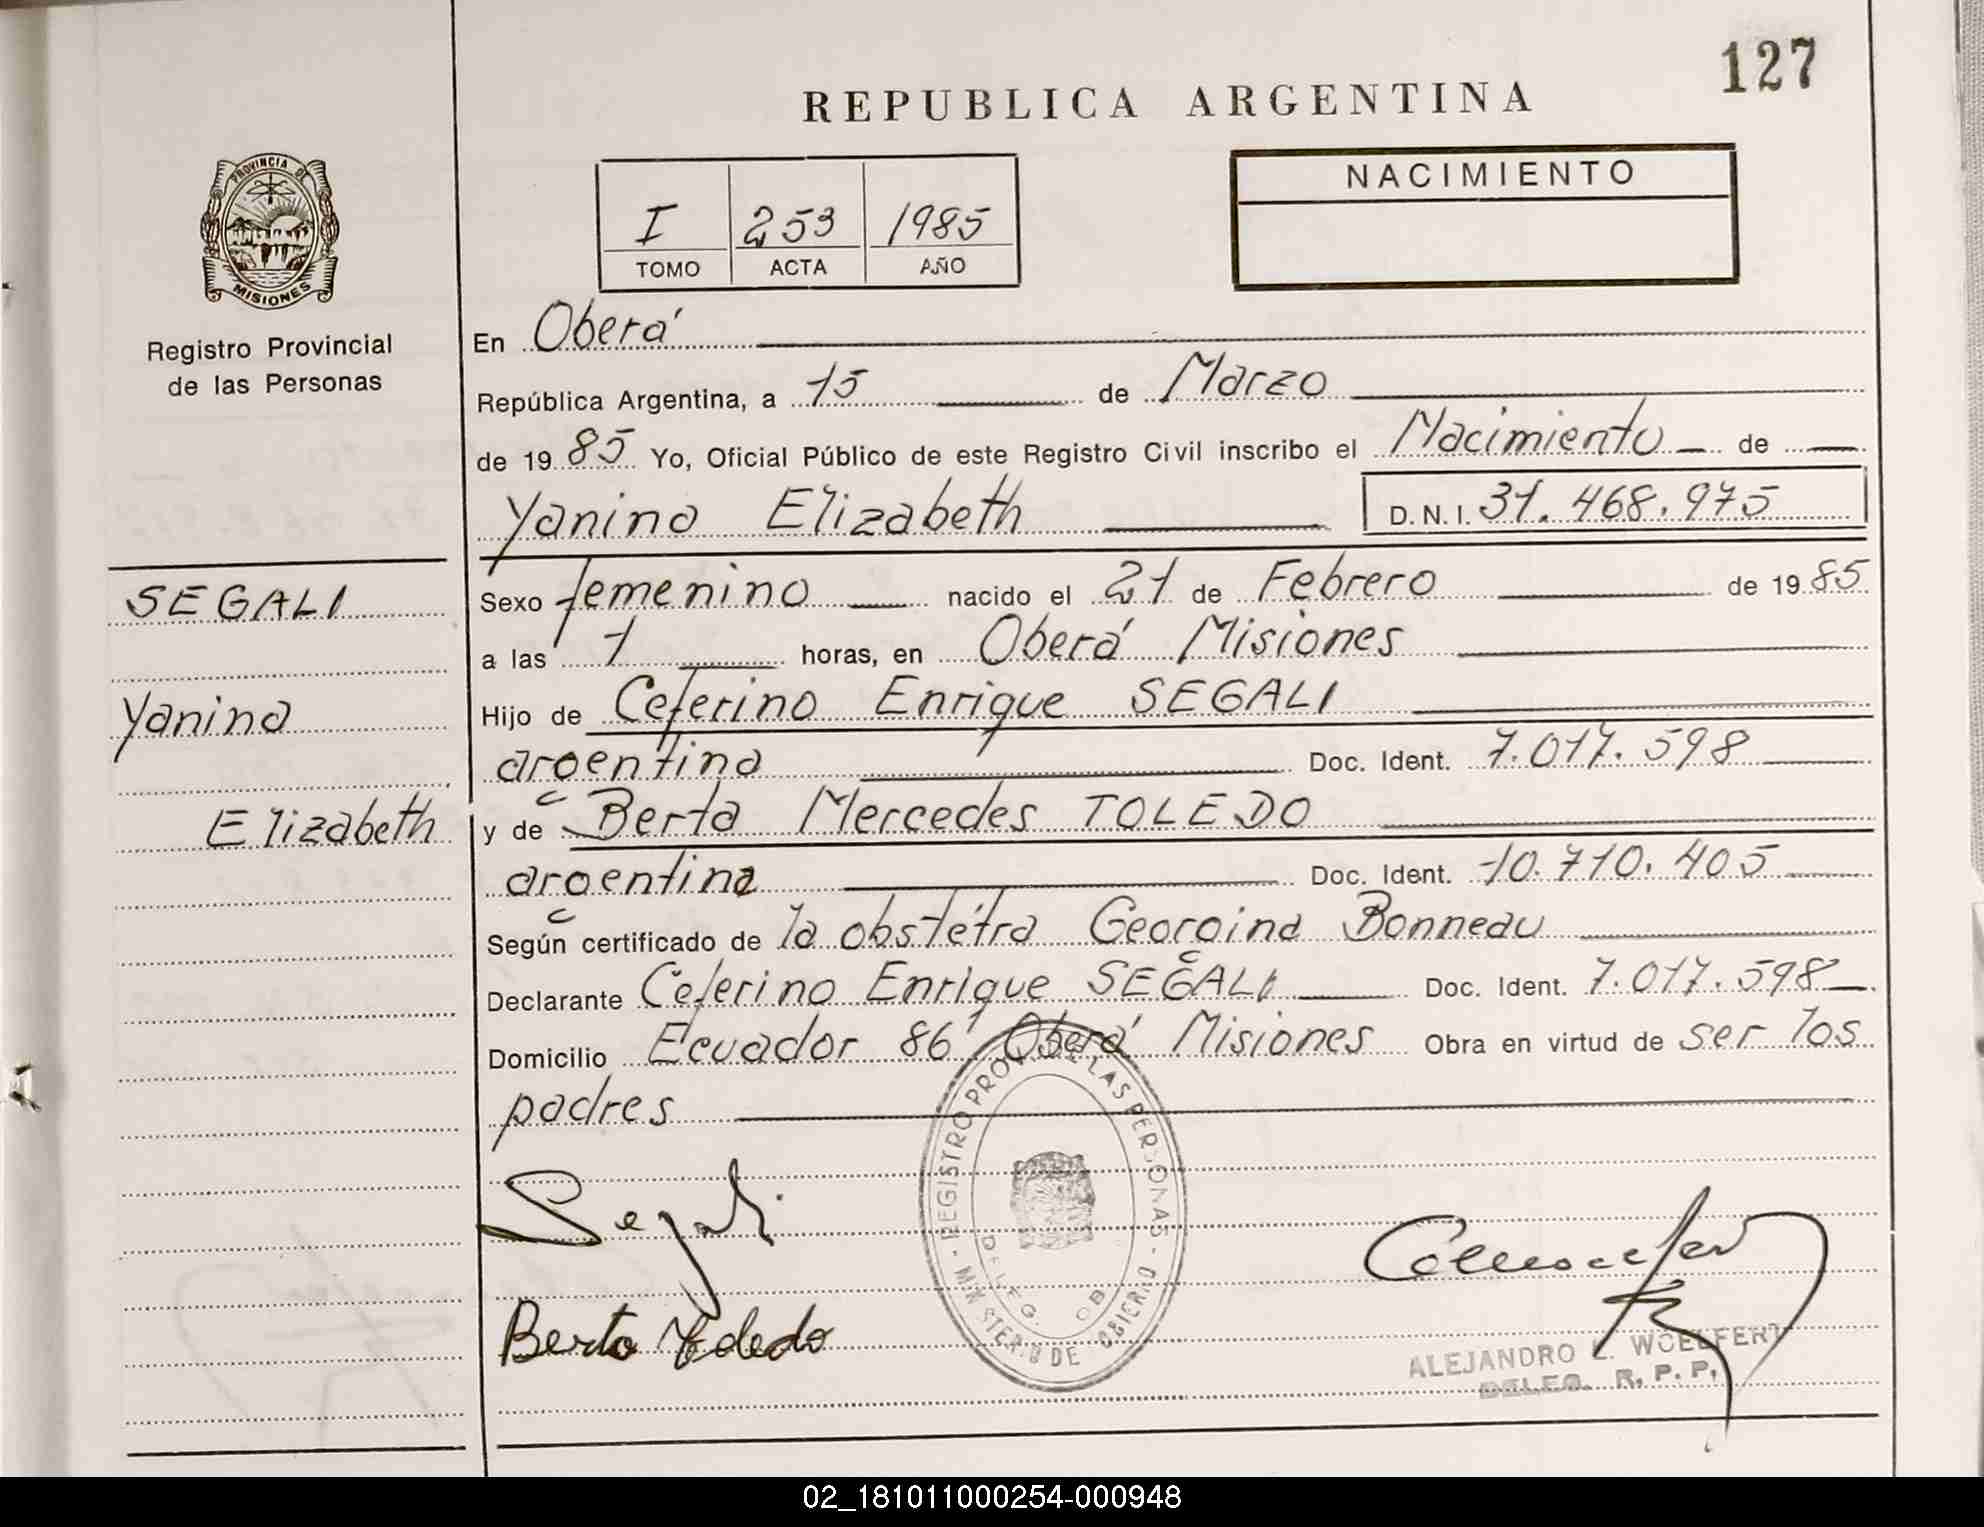 127
REPUBLICA ARGENTINA
PROVINCIA DE
MISIONES
Registro Provincial
de las Personas
I 253 1985
TOMO ACTA AÑO
NACIMIENTO
En Oberá
República Argentina, a 15 de Marzo
de 1985 Yo, Oficial Público de este Registro Civil inscribo el Nacimiento de
Yanina Elizabeth D.N.I. 31.468.975
SEGALI
Yanina
Elizabeth
Sexo femenino nacido el 21 de Febrero de 1985
a las 1 horas, en Oberá Misiones
Hijo de Ceferino Enrique SEGALI
argentino Doc. Ident. 7.017.598
y de Berta Mercedes TOLEDO
argentina Doc. Ident. 10.710.405
Según certificado de la obstétra Georgina Bonneau
Declarante Ceferino Enrique SEGALI Doc. Ident. 7.017.598
Domicilio Ecuador 86 Oberá Misiones Obra en virtud de ser los
padres
Segali
Berta Toledo
REGISTRO PROV. DE LAS PERSONAS
MINISTERIO DE GOBIERNO
DELEG. OB
ALEJANDRO L. WOELFERT
DELEG. R.P.P.
02_181011000254-000948